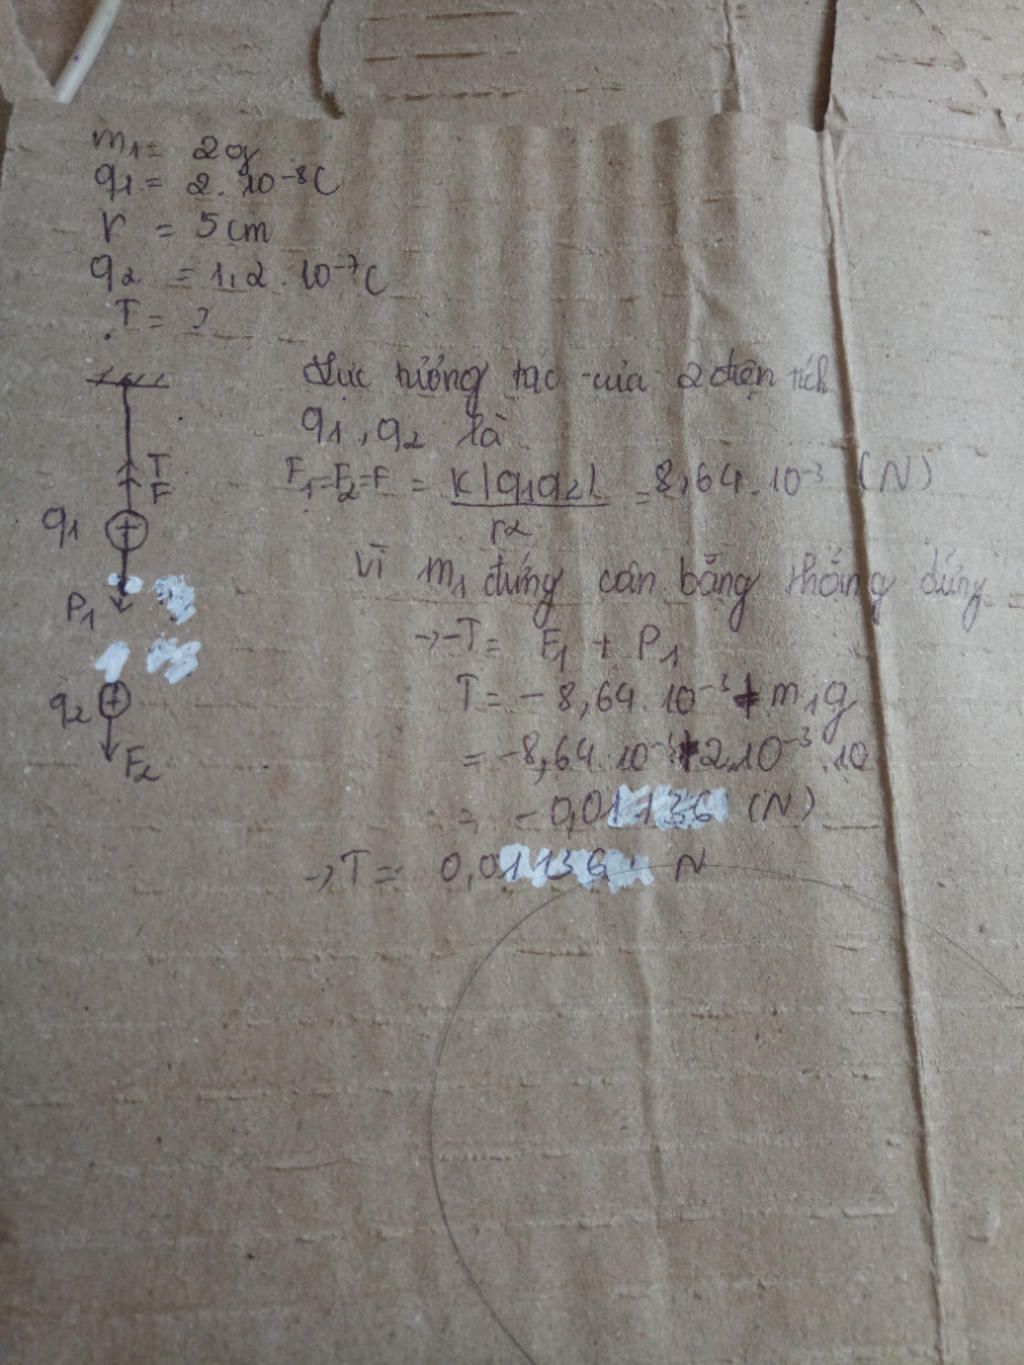 m1 = 2g
q1 = 2. 10^-8 C
r = 5cm
q2 = 1,2. 10^-7 C
T = ?
Lực tương tác của 2 điện tích
q1, q2 là
T
F
F1=F2=F = K|q1q2| / r2 = 8,64. 10^-3 (N)
q1
Vì m1 đứng cân bằng thẳng đứng
P1
→ -T = F1 + P1
q2
T = -8,64. 10^-3 + m1g
F2
= -8,64. 10^-3 + 2.10^-3 .10
= -0,01136 (N)
→ T = 0,01136 N